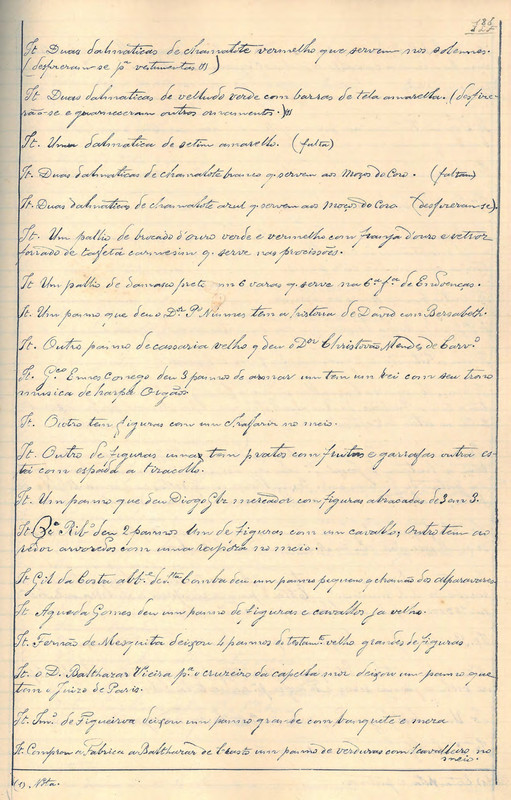 It. Duas dalmaticas de chamalote vermelho que servem nos solemnes.
(desfizeram-se pª vestimentas (1))
It. Duas dalmaticas de velludo verde com barras de tela amarella. (desfize-
rão-se e guarneceram outros ornamentos.)(1)
It. Uma dalmatica de setim amarello. (falta)
It. Duas dalmaticas de chamalote branco q. servem aos Moços do Coro. (faltam)
It. Duas dalmaticas de chamalote azul q. servem aos Moços do Coro (desfizeram-se).
It. Um pallio de brocado d'ouro verde e vermelho com franja d'ouro e retroz
forrado de tafetá carmesim q. serve nas procissões.
It Um pallio de damasco preto em 6 varas q. serve na 6ª fª de Endoenças.
It. Um panno que deu o Dor Po Nunnes tem a historia de David com Bersabeth.
It. Outro panno de cassaria velho q deu o Dor Christovão Mendes de Carvº
It. Gco conego deu 3 pannos de armar um tem um Rei com seu trono
musica de harpa Orgão.
It. Outro tem figuras com um chafariz no meio.
It. Outro de figuras umas tem pratos com fruitas e garrafas outra es-
tá com espada a tiracollo.
It. Um panno que deu Diogo Glz mercador com figuras abraçadas de 3 em 3.
It Ribº deu 2 pannos Um de figuras com um cavallo, Outro tem ao
redor arvoredos com uma raspoza no meio.
It Gil da Costa abbe de comba deu um panno pequeno q chamão dos
It Agueda Gomes deu um panno de figuras e cavallos ja velho.
It. Fernão de Mesquita deixou 4 pannos de velho grandes de figuras
It. o D. Balthazar Vieira pª o cruzeiro da capella mor deixou um panno que
tem o Juizo de Paris.
It. de Figueirôa deixou um panno grande com banquete e meza
It. Comprou a Fabrica a Balthazar de Crasto um panno de verduras com 1 cavalleiro no
meio.
(1) Nota.